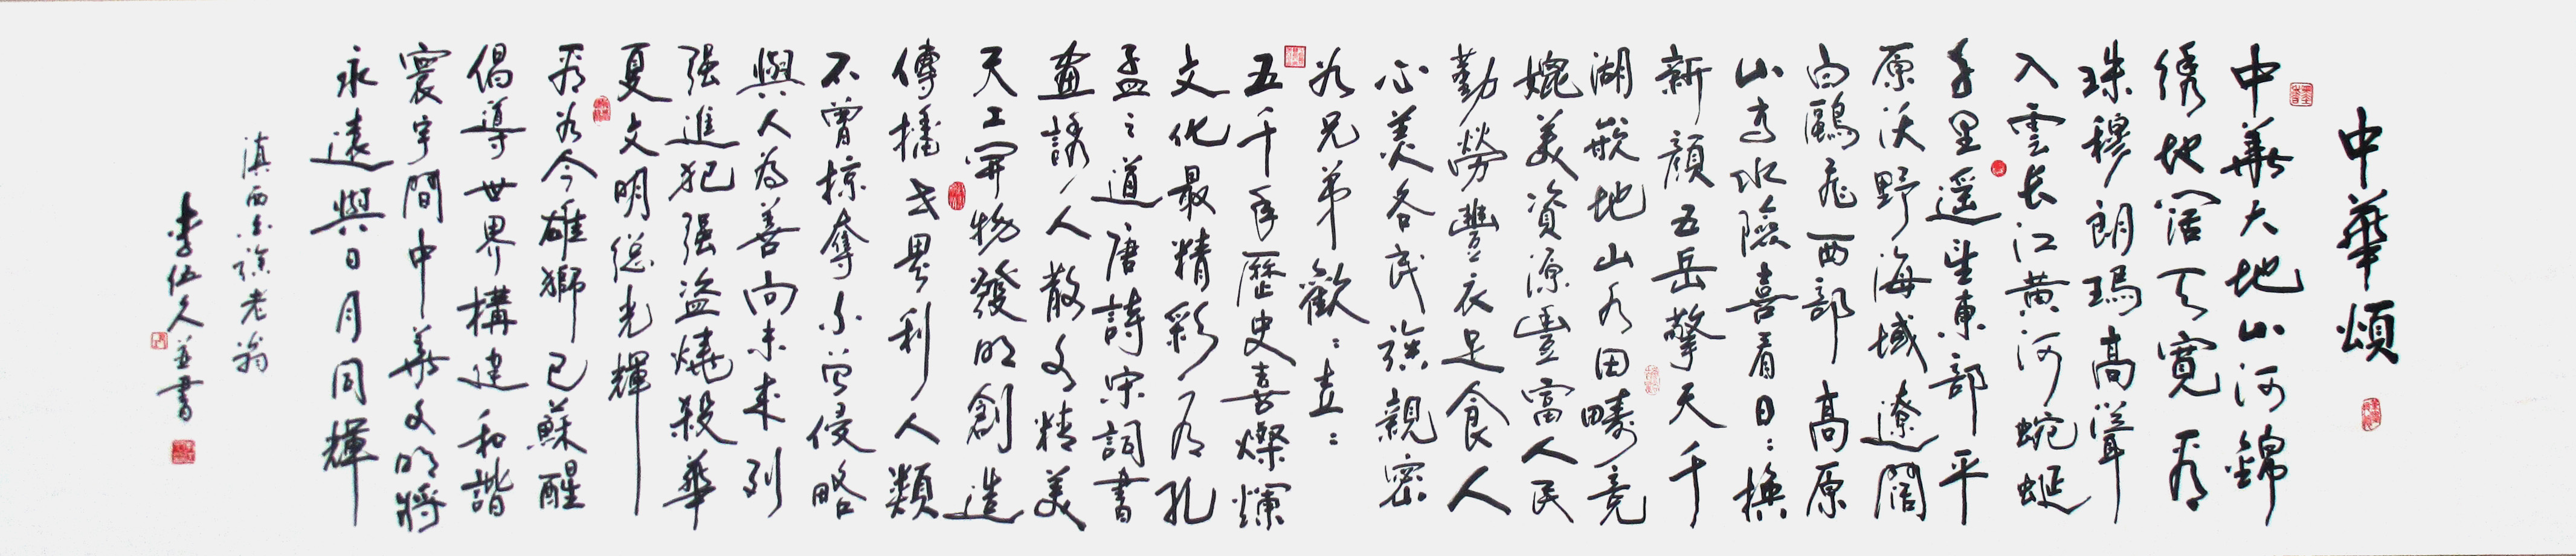 中華頌
中華大地山河錦
绣地阔天寬有
珠穆朗瑪高聳
入雲長江黄河蜿蜒
千里遥望東部平
原沃野海域遼闊
白鷗飛西部高原
山高水險喜看日:換
新顔五岳擎天千
湖嵌地山水田疇竞
媲美資源豐富人民
勤勞豐衣足食人
心美各民族親密
为兄弟歡:喜:
五千年歷史喜燦爛
文化最精彩有孔
孟之道唐詩宋詞書
畫誘人散文精美
天工開物發明創造
傳播世界利人類
不曾掠奪不曾侵略
與人為善向未来列
强進犯强盗燒殺華
夏文明總光輝
看为今雄獅已蘇醒
倡導世界構建和諧
寰宇間中華文明將
永遠與日月同輝
滇西老翁
李伍久並書